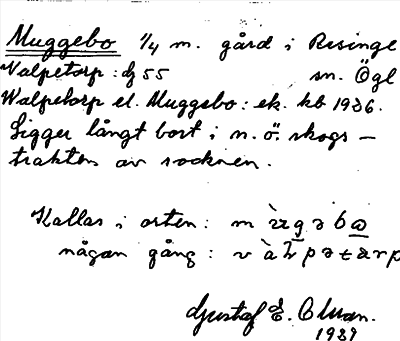 Muggebo 1/4 m. gård i Risinge
Valpetorp: dj 55 sn. Ögl
Walpetorp el. Muggebo: ek. kb 1936.
Ligger långt bort i n.ö. skogs-
trakten av socknen.
Kallas i orten:
någon gång:
Gustaf E. Olson.
1939